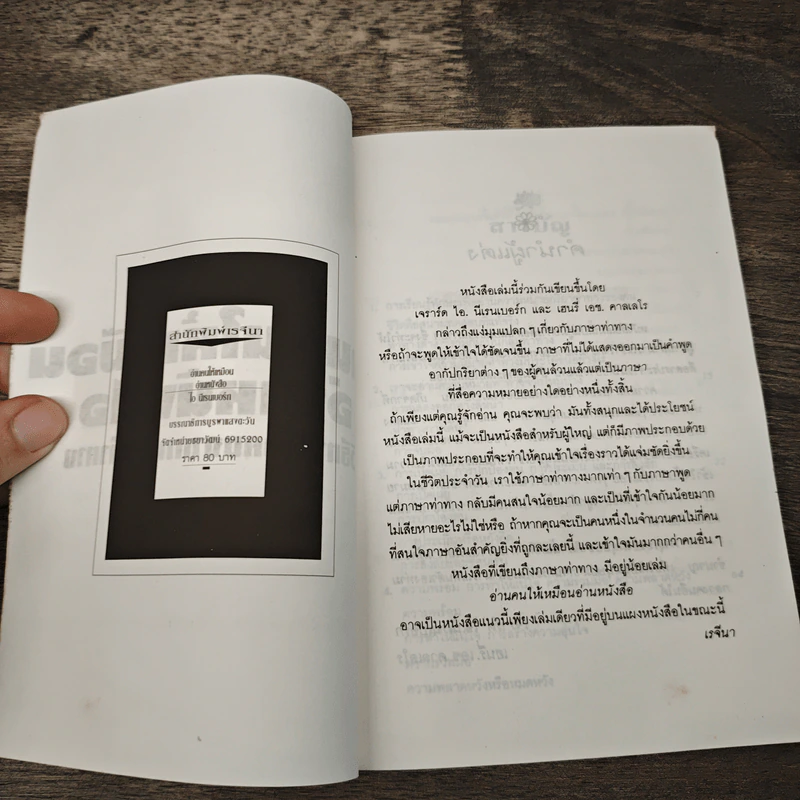 สำนักพิมพ์เรจีนา
อ่านคนให้เหมือน
อ่านหนังสือ
ไอ นีเรนเบอร์ก
บรรณาธิการบูรพาแสงตะวัน
6915200
ราคา 80 บาท
หนังสือเล่มนี้ร่วมกันเขียนขึ้นโดย
เจราร์ด ไอ. นีเรนเบอร์ก และ เฮนรี่ เอช. คาลเลโร
กล่าวถึงแง่มุมแปลก ๆ เกี่ยวกับภาษาท่าทาง
หรือถ้าจะพูดให้เข้าใจได้ชัดเจนขึ้น ภาษาที่ไม่ได้แสดงออกมาเป็นคำพูด
อากัปกริยาต่าง ๆ ของผู้คนล้วนแล้วแต่เป็นภาษา
ที่สื่อความหมายอย่างใดอย่างหนึ่งทั้งสิ้น
ถ้าเพียงแต่คุณรู้จักอ่าน คุณจะพบว่า มันทั้งสนุกและได้ประโยชน์
หนังสือเล่มนี้ แม้จะเป็นหนังสือสำหรับผู้ใหญ่ แต่ก็มีภาพประกอบด้วย
เป็นภาพประกอบที่จะทำให้คุณเข้าใจเรื่องราวได้แจ่มชัดยิ่งขึ้น
ในชีวิตประจำวัน เราใช้ภาษาท่าทางมากเท่า ๆ กับภาษาพูด
แต่ภาษาท่าทาง กลับมีคนสนใจน้อยมาก และเป็นที่เข้าใจกันน้อยมาก
ไม่เสียหายอะไรไม่ใช่หรือ ถ้าหากคุณจะเป็นคนหนึ่งในจำนวนคนไม่กี่คน
ที่สนใจภาษาอันสำคัญยิ่งที่ถูกละเลยนี้ และเข้าใจมันมากกว่าคนอื่น ๆ
หนังสือที่เขียนถึงภาษาท่าทาง มีอยู่น้อยเล่ม
อ่านคนให้เหมือนอ่านหนังสือ
อาจเป็นหนังสือแนวนี้เพียงเล่มเดียวที่มีอยู่บนแผงหนังสือในขณะนี้
เรจีนา